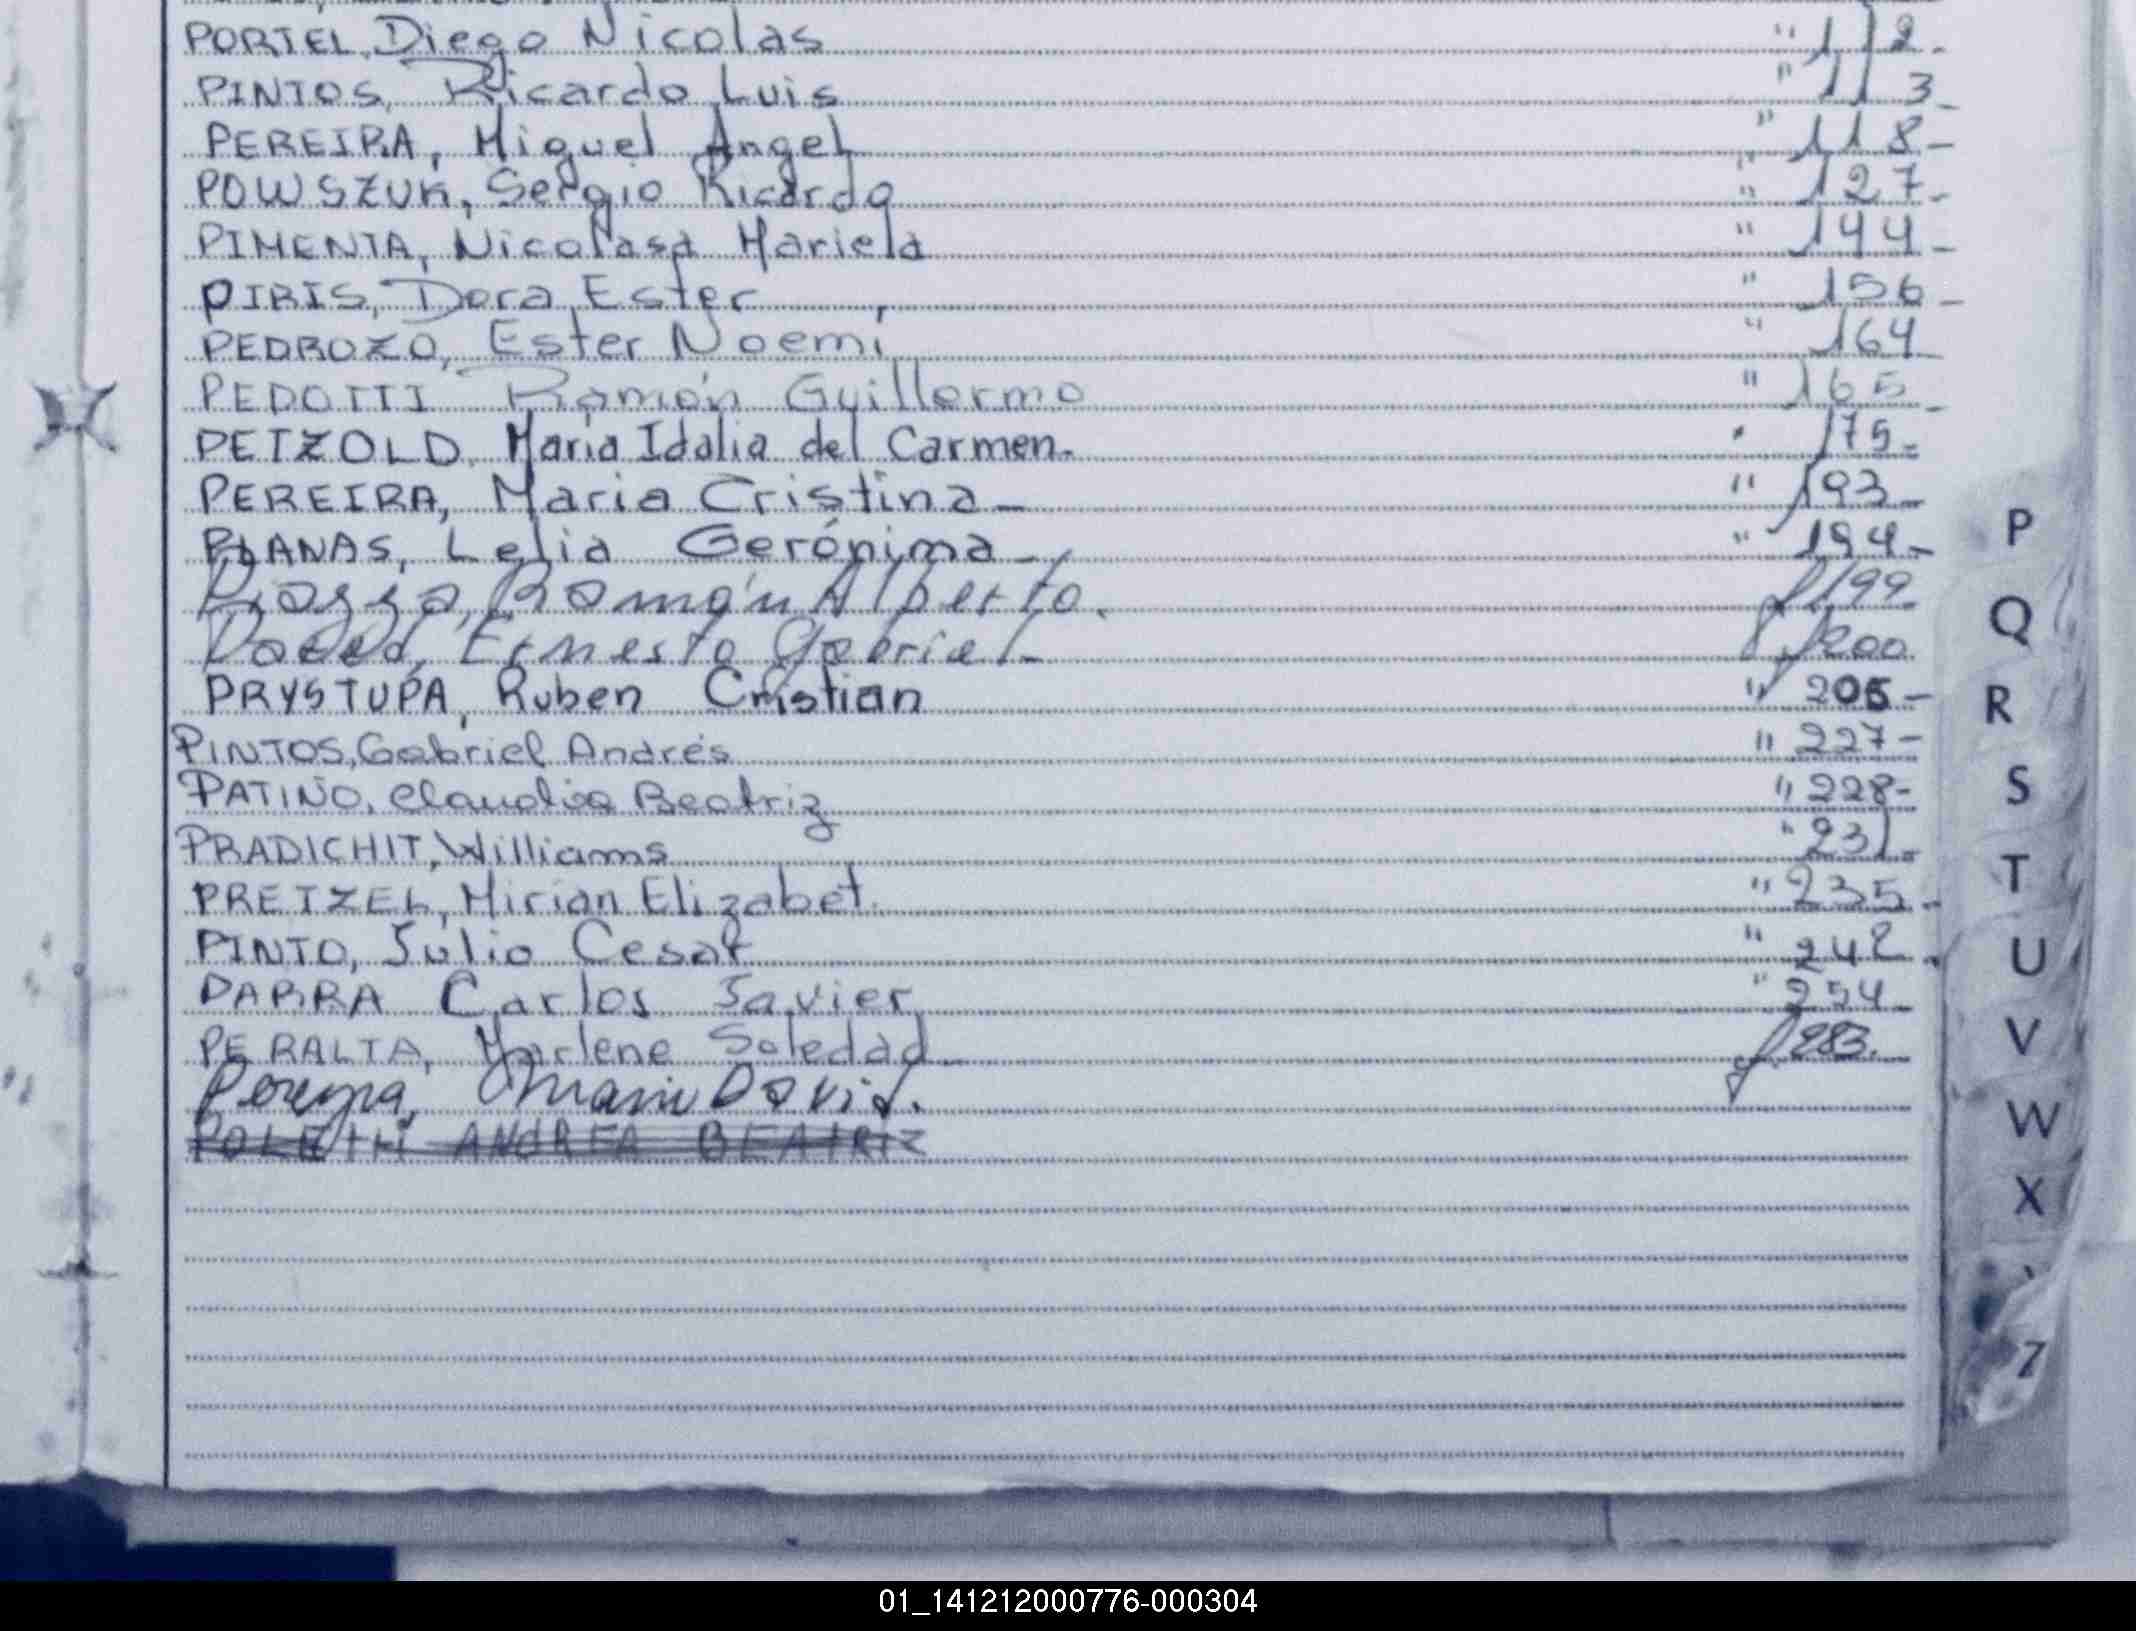 PORTEL, Diego Nicolas " 112.
PINTOS, Ricardo Luis " 113_
PEREIRA, Miguel Angel " 118_
POWSZUK, Sergio Ricardo " 127_
PIMENTA, Nicolasa Mariela " 144_
PIRIS, Dora Ester " 156_
PEDROZO, Ester Noemí " 164
PEDOTTI Ramón Guillermo " 165_
PETZOLD, Maria Idalia del Carmen. " 175_
PEREIRA, Maria Cristina_ " 193_
PLANAS, Lelia Gerónima_ " 194_
Román Alberto. 199
Ernesto Gabriel_ 200
PRYSTUPA, Ruben Cristian " 205_
PINTOS, Gabriel Andrés " 227_
PATIÑO, Claudia Beatriz " 228_
PRADICHIT, Williams " 231_
PRETZEL, Mirian Elizabet. " 235_
PINTO, Julio Cesar " 242.
PARRA Carlos Javier " 254_
PERALTA, Marlene Soledad_ 283.
Pereyra, David.
ANDREA BEATRIZ
P
Q
R
S
T
U
V
W
X
Z
01_141212000776-000304